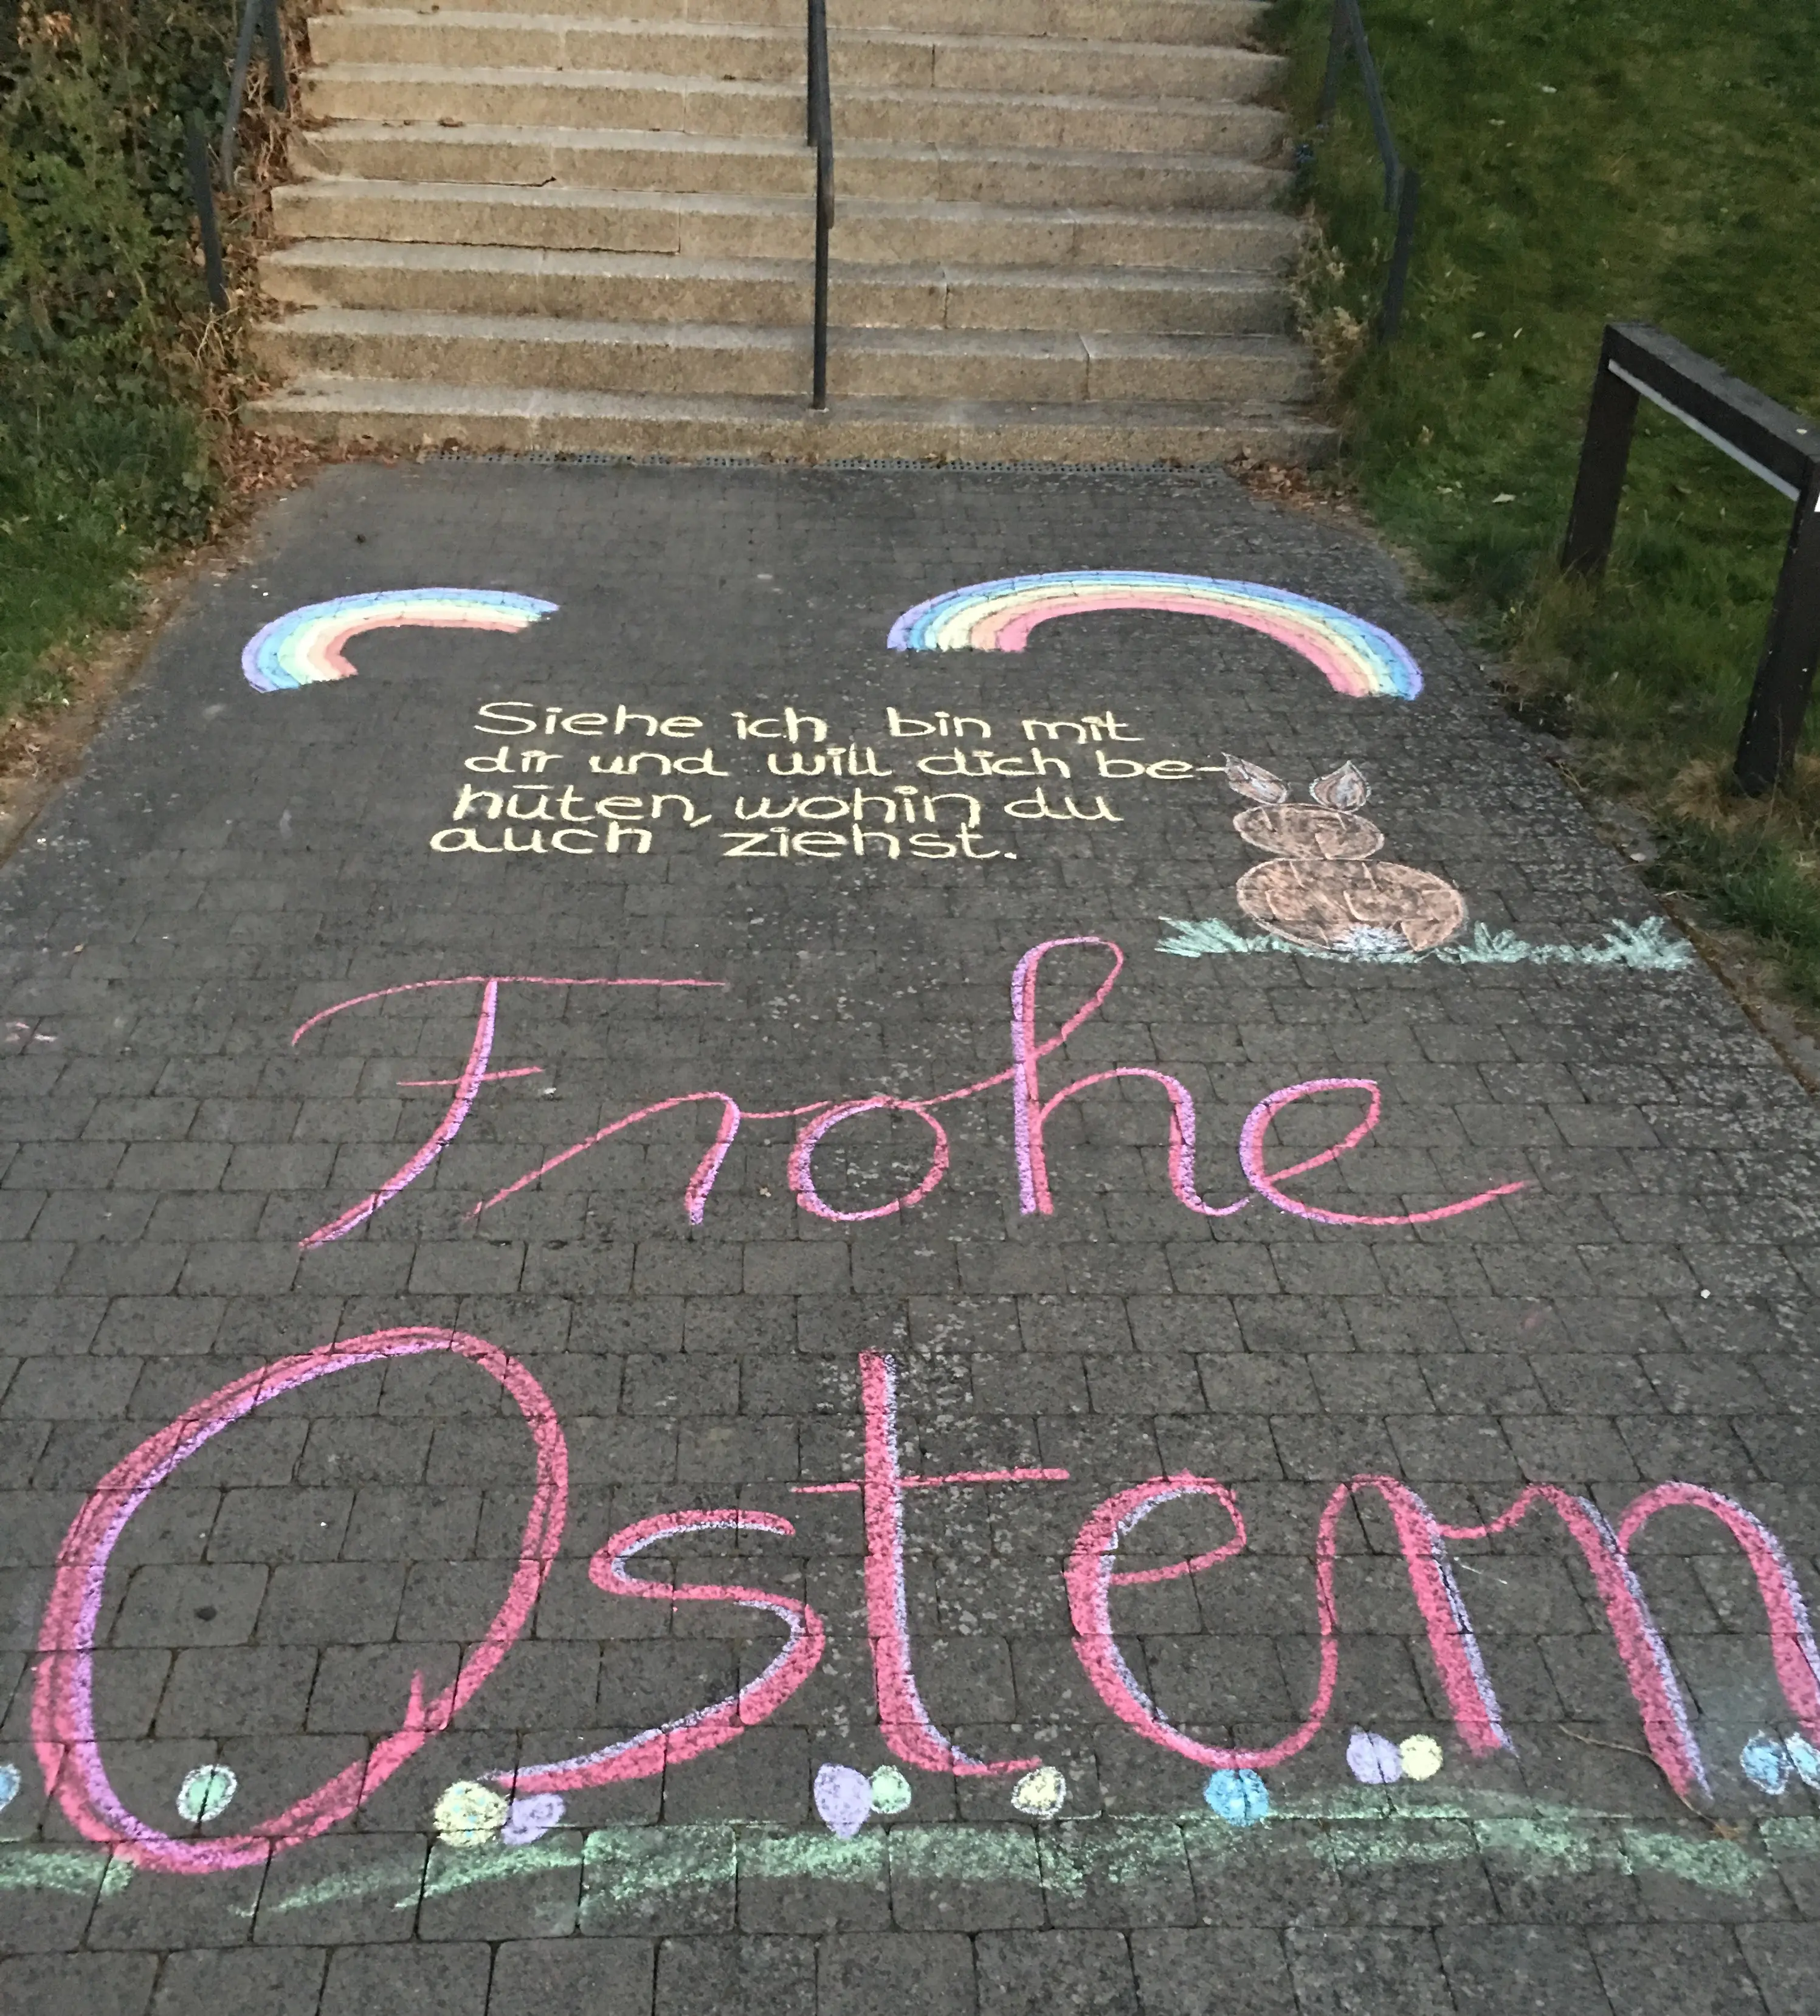 Siehe ich bin mit
dir und will dich be-
hüten, wohin du
auch ziehst.
Frohe
Ostern